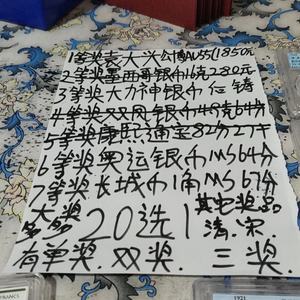 1等奖袁大头公博AU55(1850元
2等奖墨西哥银币16克280元
3等奖大力神银币伝铸
4等奖双凤银币48克64分
5等奖康熙通宝82分27
6等奖奥运银币MS64分
7等奖长城币1角MS67分
大奖多多 20选1 其它奖品清.宋.
有单奖.双奖.三奖.
1921